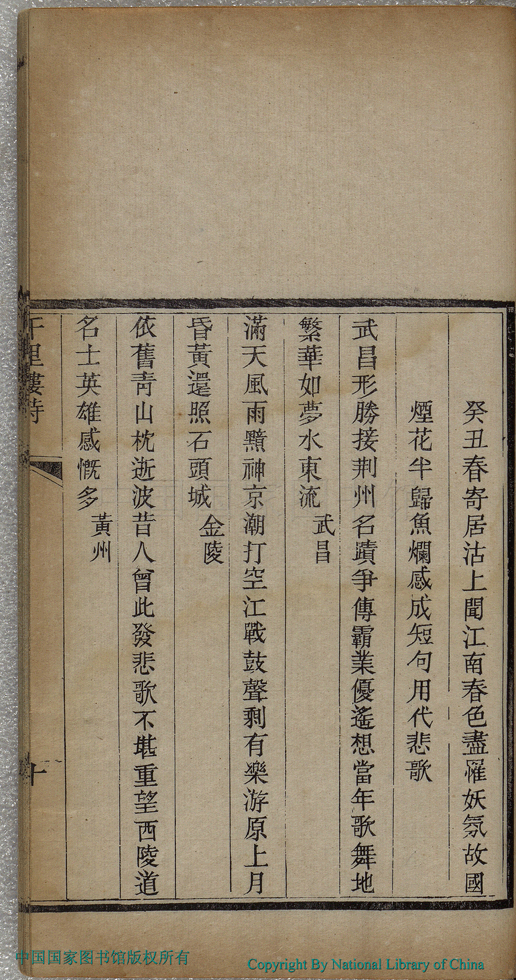 癸丑春寄居沽上聞江南春色盡罹妖氛故國
煙花半歸魚爛感成短句用代悲歌
武昌形勝接荆州名蹟爭傳霸業優遙想當年歌舞地
繁華如夢水東流 武昌
滿天風雨黯神京潮打空江戰鼓聲剩有樂游原上月
昏黃還照石頭城 金陵
依舊青山枕逝波昔人曾此發悲歌不堪重望西陵道
名士英雄感慨多 黃州
里樓詩
十
中国国家图书馆版权所有
Copyright By National Library of China